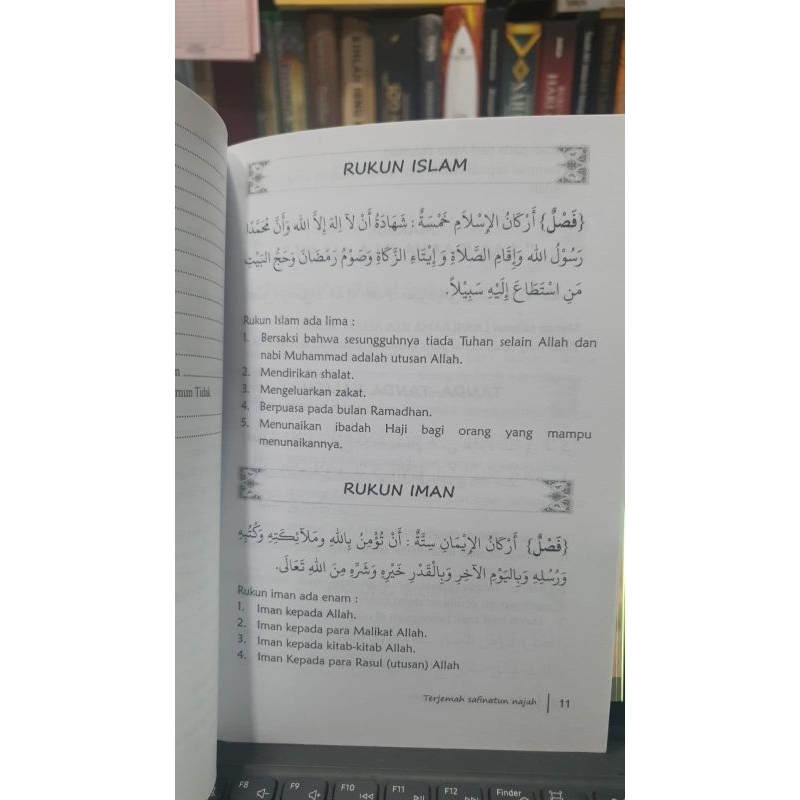 RUKUN ISLAM
{فَصْلٌ} أَرْكَانُ الإِسْلَامِ خَمْسَةٌ : شَهَادَةُ أَنْ لَا إِلهَ إِلاَّ الله وَأَنَّ مُحَمَّدًا
رَسُوْلُ الله وَإِقَامِ الصَّلَاةِ وَ إِيْتَاءِ الزَّكَاةِ وَصَوْمُ رَمَضَانَ وَحَجُّ البَيْتِ
مَنِ اسْتَطَاعَ إِلَيْهِ سَبِيْلاً.
Rukun Islam ada lima :
1. Bersaksi bahwa sesungguhnya tiada Tuhan selain Allah dan
nabi Muhammad adalah utusan Allah.
2. Mendirikan shalat.
3. Mengeluarkan zakat.
4. Berpuasa pada bulan Ramadhan.
5. Menunaikan ibadah Haji bagi orang yang mampu
menunaikannya.
RUKUN IMAN
{فَصْلٌ} أَرْكَانُ الإِيْمَانِ سِتَّةٌ : أَنْ تُؤْمِنُ بِاللهِ ومَلَآئِكَتِهِ وَكُتُبِهِ
وَرُسُلِهِ وَبِاليَوْمِ الآخِرِ وَبِالْقَدْرِ خَيْرِهِ وَشَرِّهِ مِنَ اللهِ تَعَالَى.
Rukun iman ada enam :
1. Iman kepada Allah.
2. Iman kepada para Malikat Allah.
3. Iman kepada kitab-kitab Allah.
4. Iman Kepada para Rasul (utusan) Allah
Terjemah safinatun najah | 11
F8 F9 F10 F11 F12 Finder